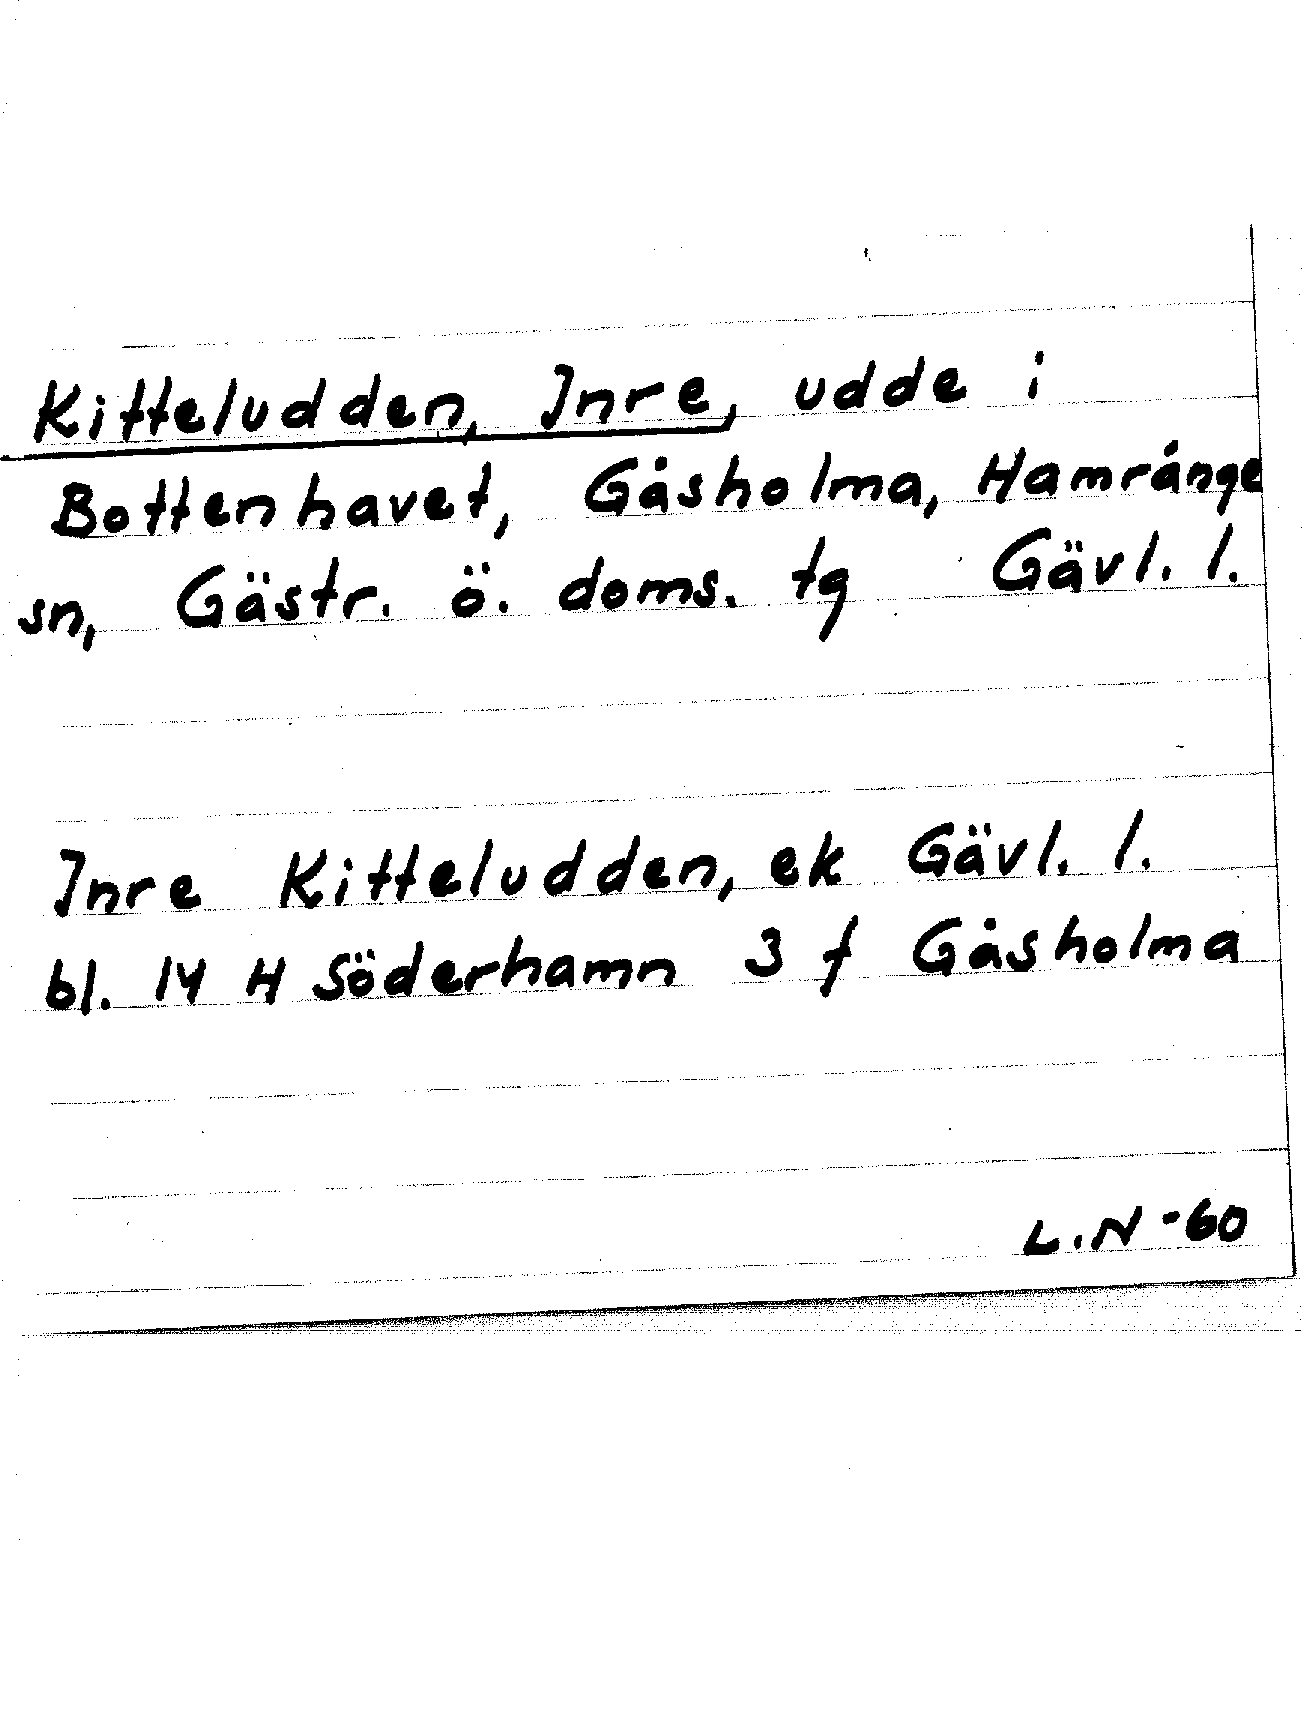 Kitteludden, Inre, udde i
Bottenhavet, Gåsholma, Hamrånge
sn, Gästr. ö. doms. tg Gävl. l.
Inre Kitteludden, ek Gävl. l.
bl. 14 H Söderhamn 3 f Gåsholma
L.N -60